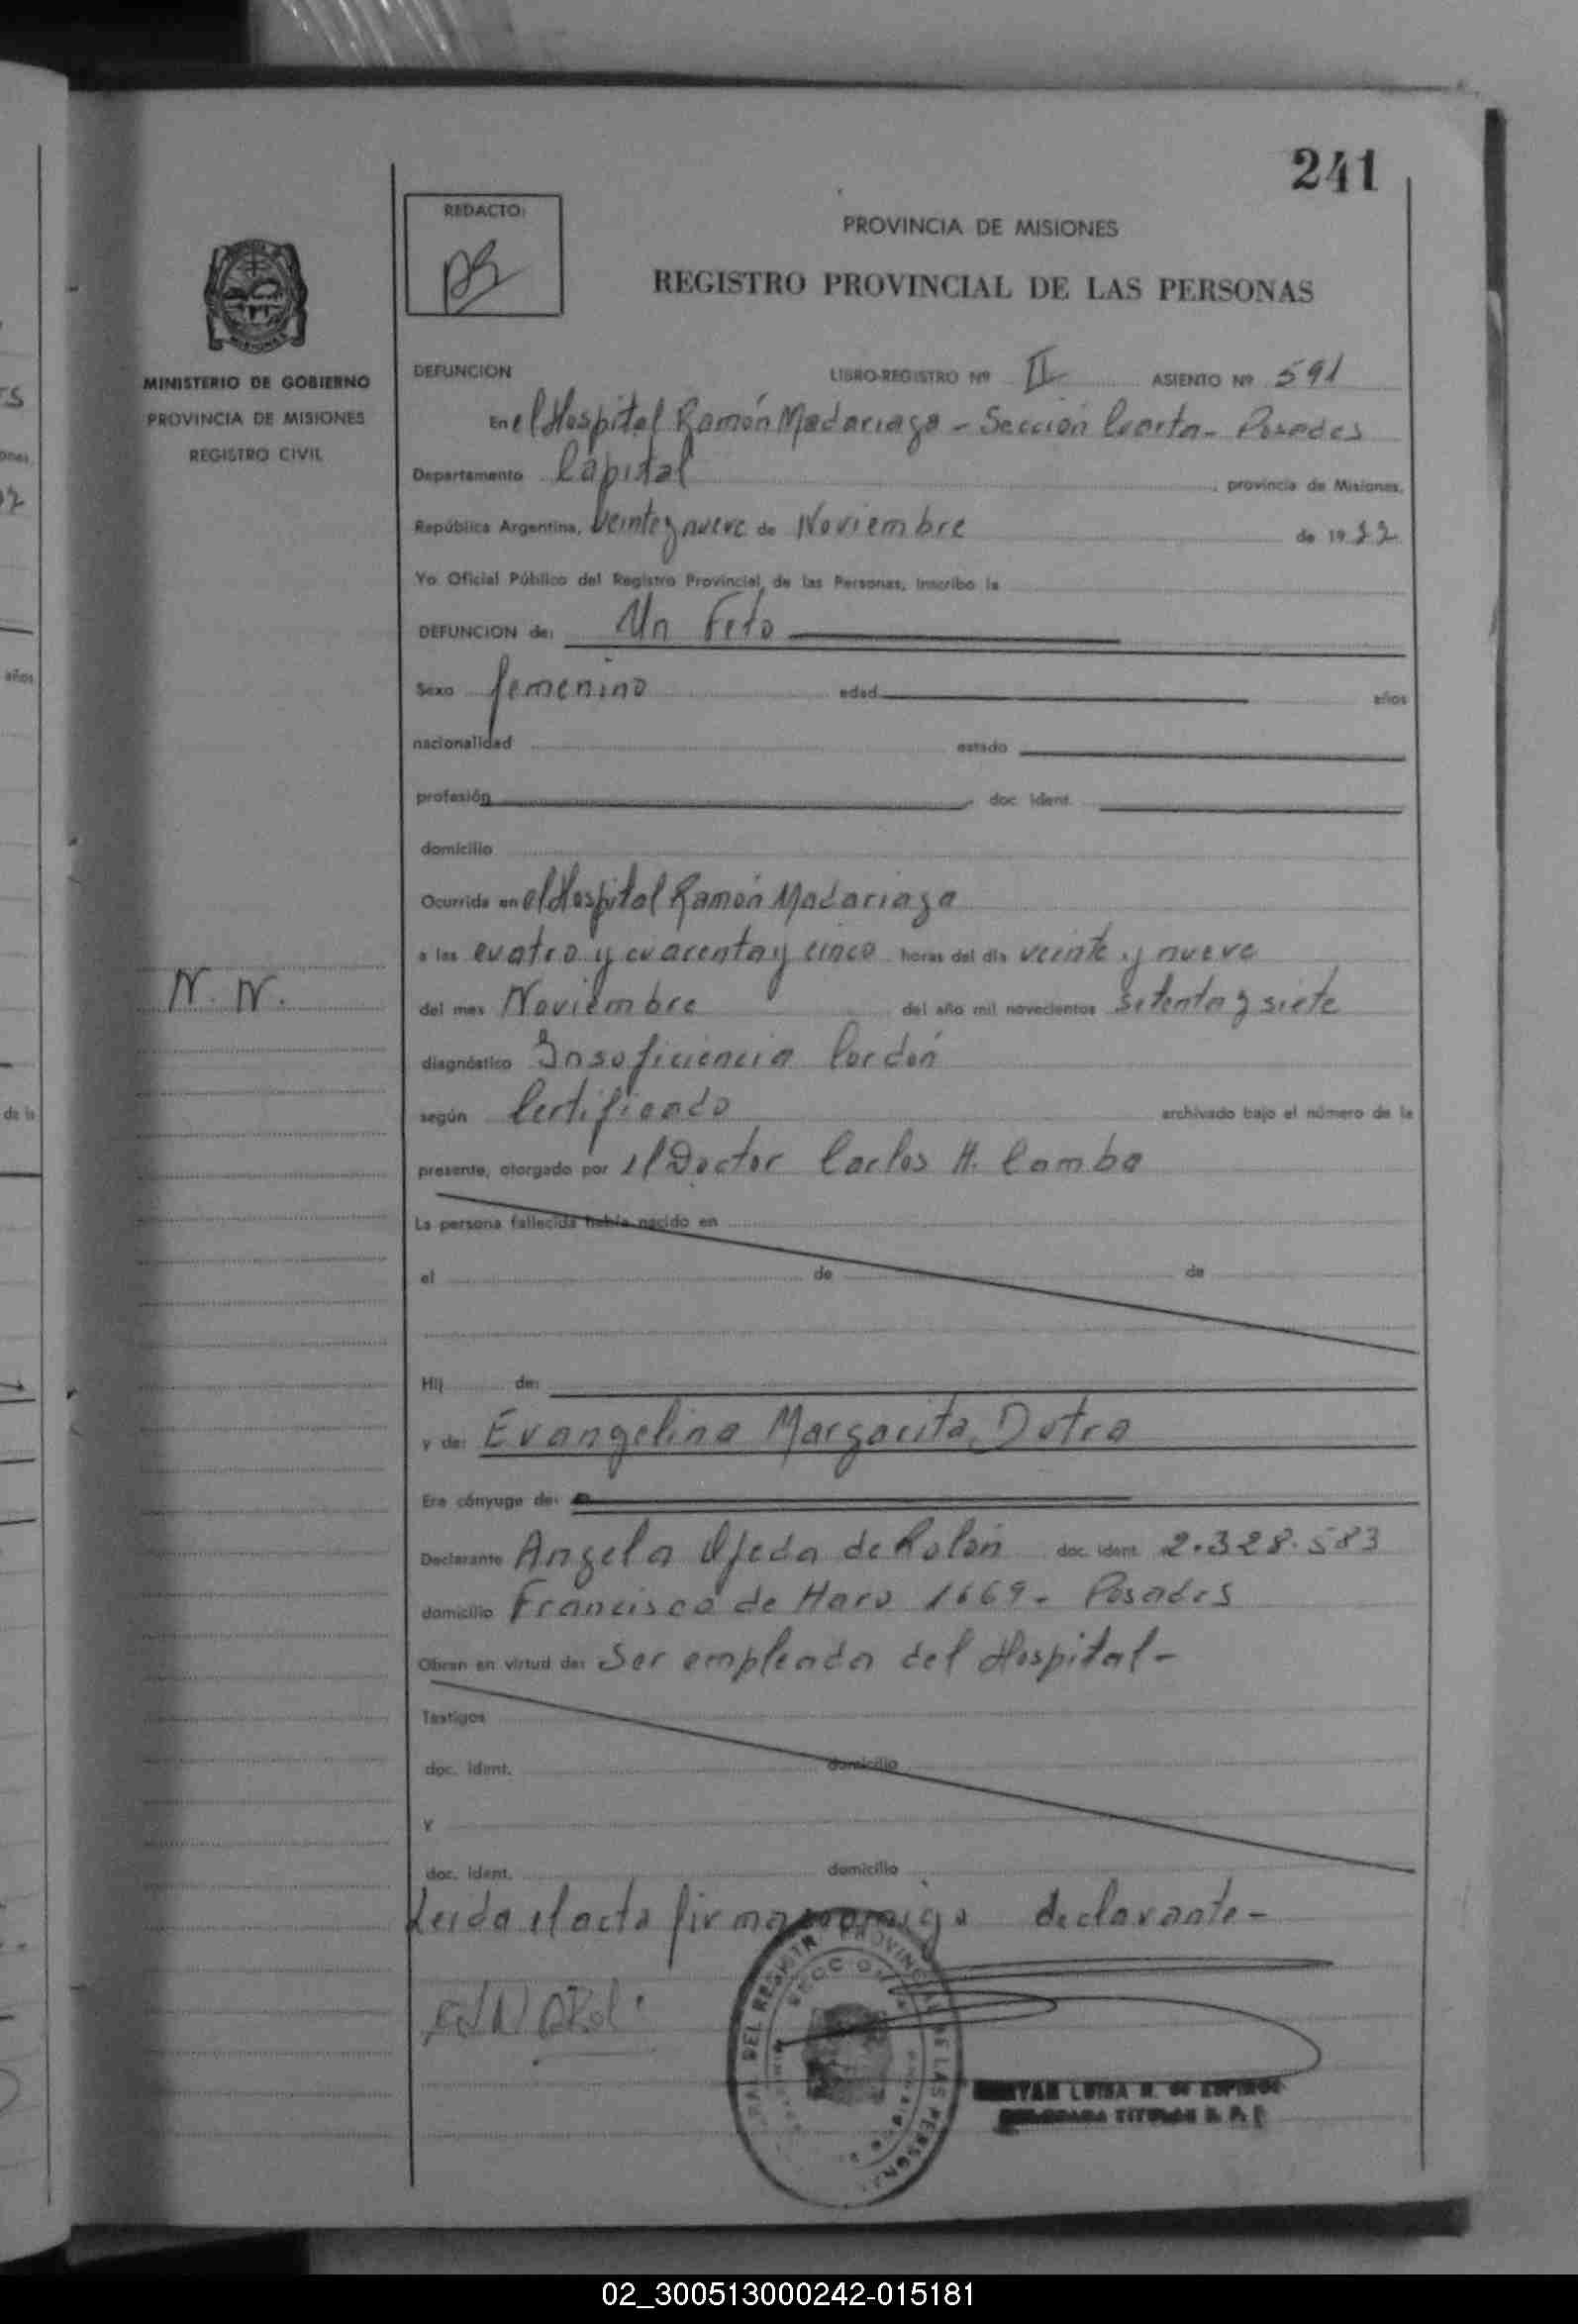 241
REDACTO:
PROVINCIA DE MISIONES
REGISTRO PROVINCIAL DE LAS PERSONAS
MINISTERIO DE GOBIERNO
PROVINCIA DE MISIONES
REGISTRO CIVIL
DEFUNCION LIBRO-REGISTRO Nº II ASIENTO Nº 591
En el Hospital Ramón Madariaga - Sección Cuarta - Posadas
Departamento Capital, provincia de Misiones,
República Argentina, veinte y nueve de Noviembre de 1977
Yo Oficial Público del Registro Provincial de las Personas, inscribo la
DEFUNCION de: Un Feto
Sexo femenino edad años
nacionalidad estado
profesión, doc. ident.
domicilio
Ocurrida en el Hospital Ramón Madariaga
a las cuatro y cuarenta y cinco horas del día veinte y nueve
N. N.
del mes Noviembre del año mil novecientos setenta y siete
diagnóstico Insuficiencia Cordón
según Certificado archivado bajo el número de la
presente, otorgado por el Doctor Carlos H. Camba
La persona fallecida había nacido en
el de de
Hij de:
y de: Evangelina Margarita Dutra
Era cónyuge de:
Declarante Angela Ojeda de Rolón doc. ident. 2.328.583
domicilio Francisco de Haro 1669 - Posadas
Obran en virtud de: Ser empleada del Hospital -
Testigos
doc. ident. domicilio
y
doc. ident. domicilio
Leida el acta firma conmigo declarante -
DEL REGISTRO PROVINCIAL DE LAS PERSONAS
LUISA
TITULAR
02_300513000242-015181